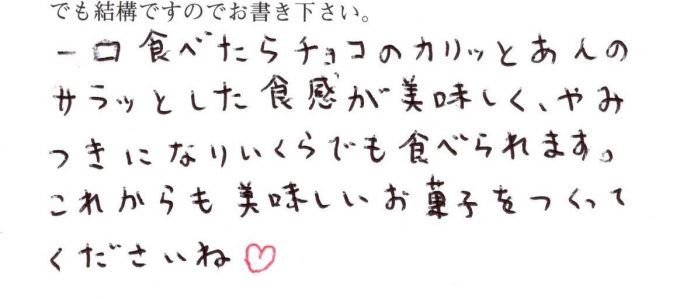 でも結構ですのでお書き下さい。
一口食べたらチョコのカリッとあんの
サラッとした食感が美味しく、やみ
つきになりいくらでも食べられます。
これからも美味しいお菓子をつくって
くださいね♡